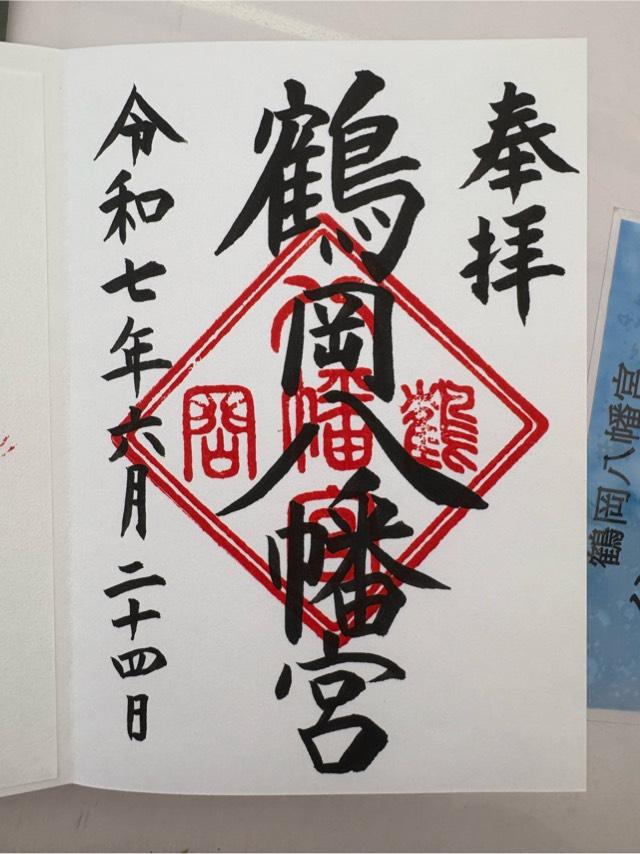 奉拝
鶴岡八幡宮
令和七年六月二十四日
鶴岡八幡宮
鶴岡八幡宮